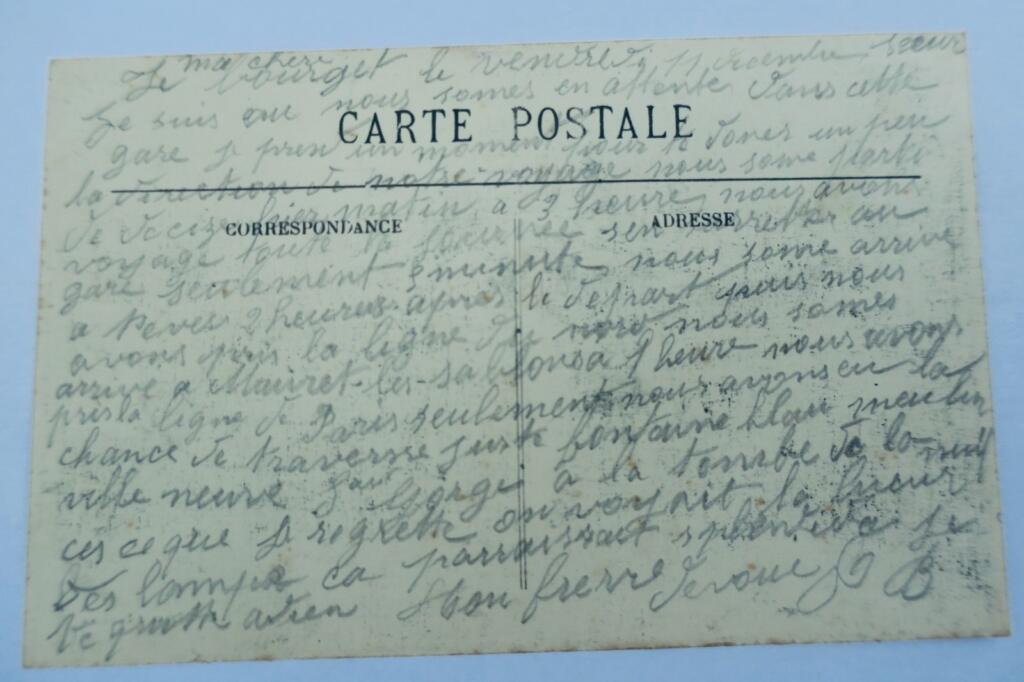 Le bourget le vendredi 11 decembre
ma chere sœur
Je suis que nous somes en attente dans cette
CARTE POSTALE
gare je pren un moment pour te doner un peu
la direction de notre voyage nous some parti
de hier matin a 3 heure nous avons
CORRESPONDANCE ADRESSE
voyage toute la journée sen arreter au
gare seulement minute nous some arrive
a 2 heures après le depart puis nous
avons pris la ligne du nord nous somes
arrive a Mauret-les-sablons a 1 heure nous avons
pris la ligne de Paris seulement nous avons eu la
chance de traverse juste fontaine blau meulin
ville neuve Gorge a la tombe de la nuit
ces ce que je regrette on voyait la lueur
des lampe ca parraissait splendide je
te quitte adieu Ston frerre devoue B